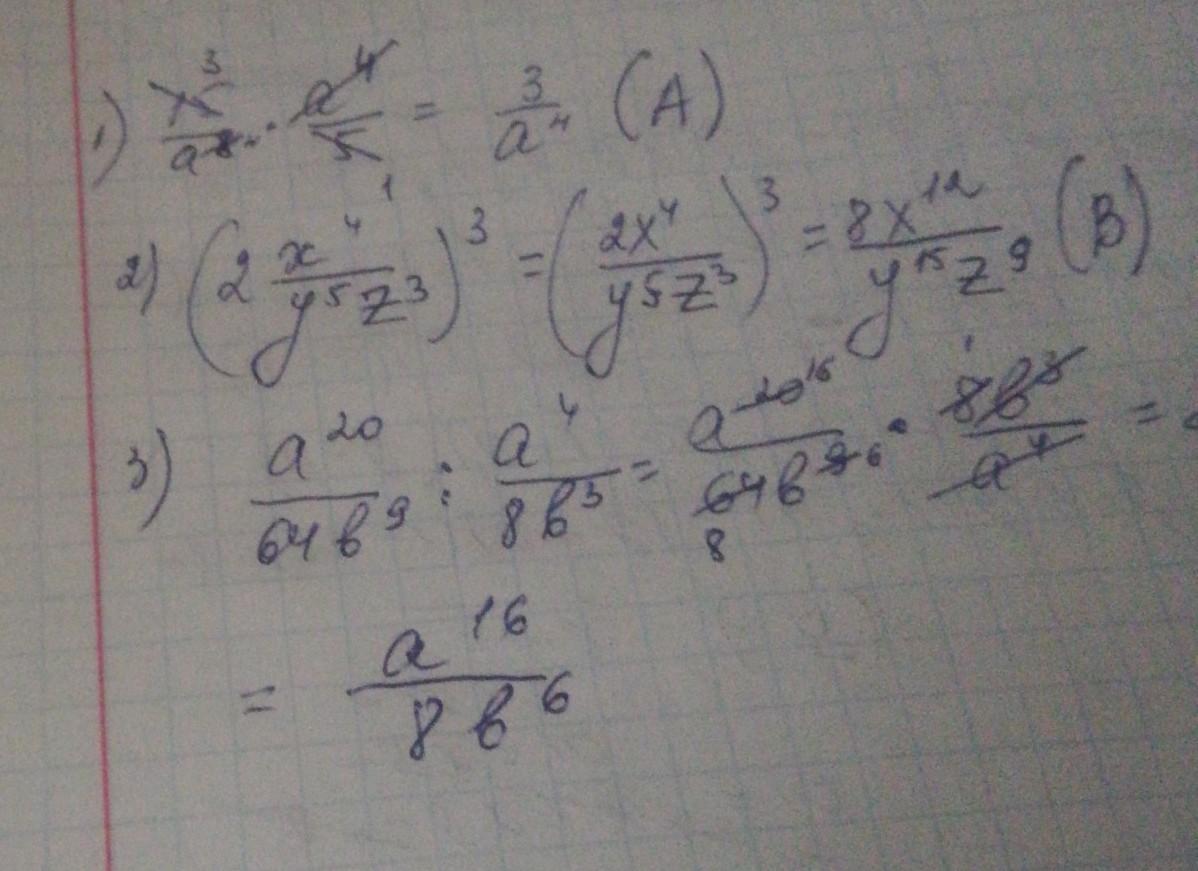 1) 15 3 / a^8 4 · a^4 / 5 1 = 3 / a^4 (A)
2) (2 x^4 / y^5 z^3)^3 = (2x^4 / y^5 z^3)^3 = 8x^12 / y^15 z^9 (B)
3) a^20 / 64b^9 : a^4 / 8b^3 = a^20 16 / 64b^9 6 8 · 8b^3 1 / a^4 =
= a^16 / 8b^6